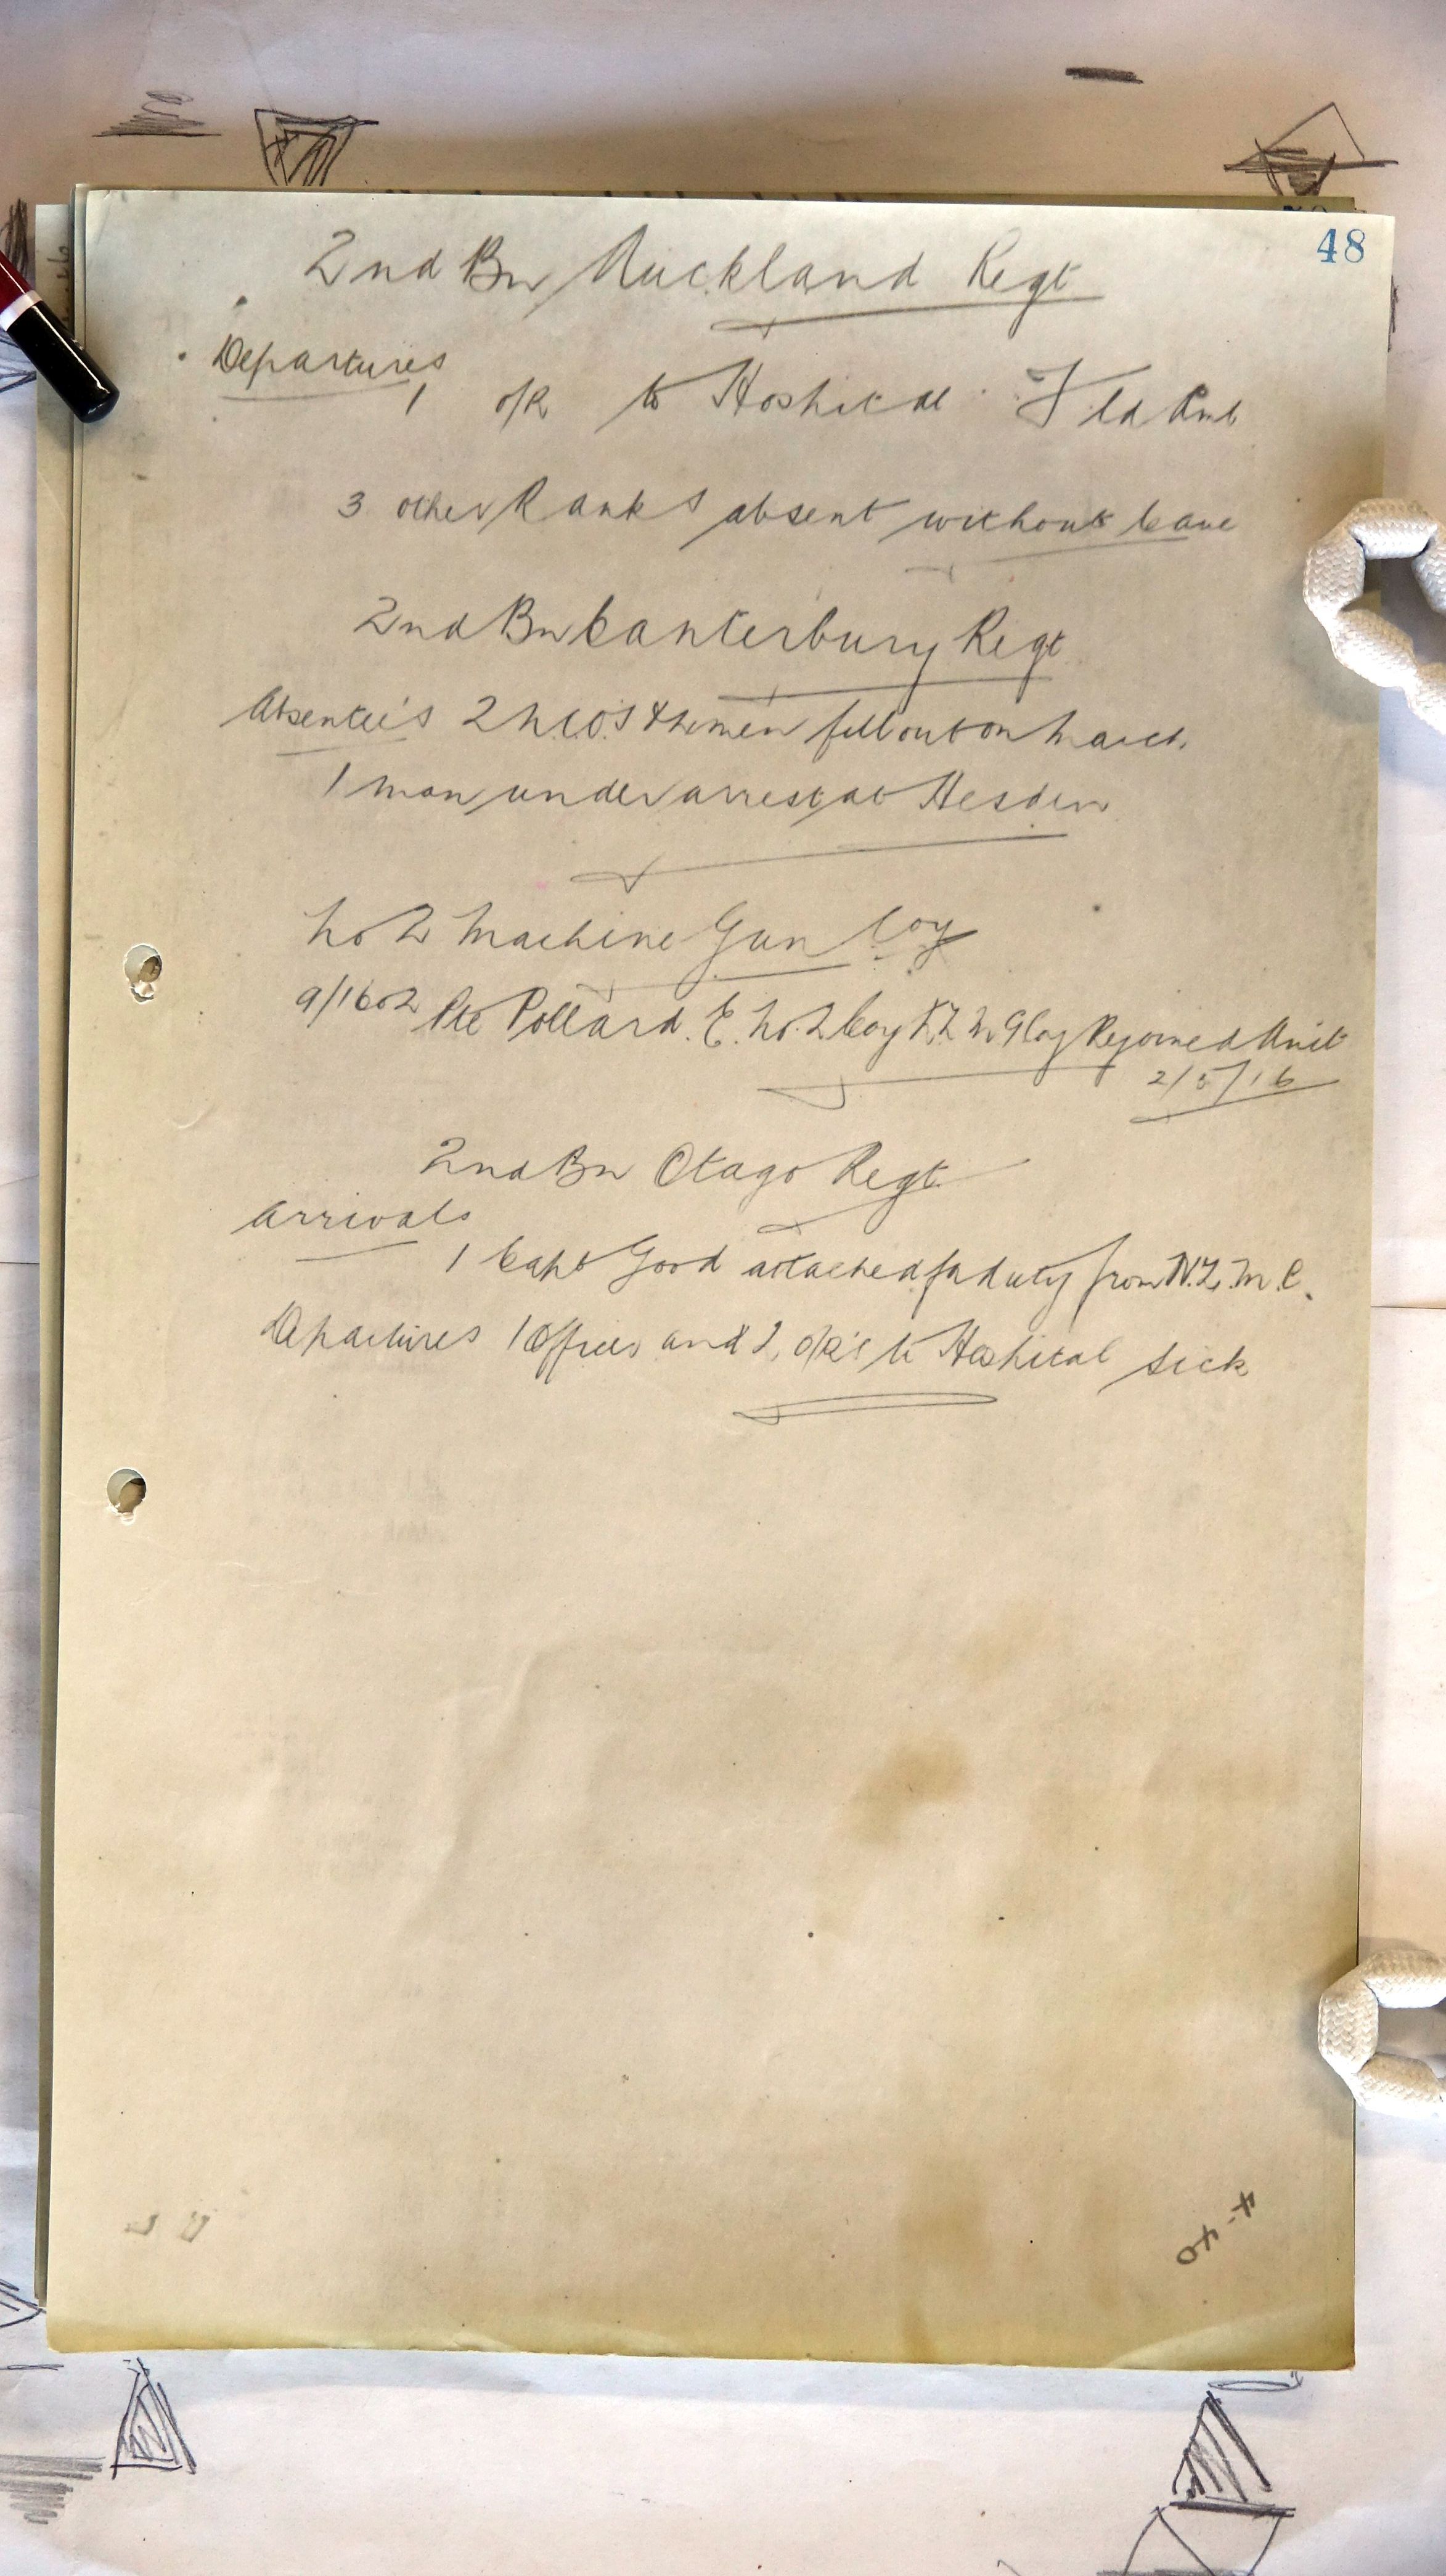 48
2nd Bn Auckland Regt
Departures
1 o/R to Hospital Fld Amb
3 other Ranks absent without leave
2nd Bn Canterbury Regt
Absentee's 2 NCO's & men fell out on March
1 man under arrest at Hesdin
No 2 Machine Gun Coy
9/1602 Pte Pollard. E. No. 2 Coy N.Z M. G Coy Rejoined Unit
2/5/16
2nd Bn Otago Regt
Arrivals
1 Capt Good attached for duty from N.Z.M.C.
Departures 1 Officer and 2, o/R's to Hospital sick